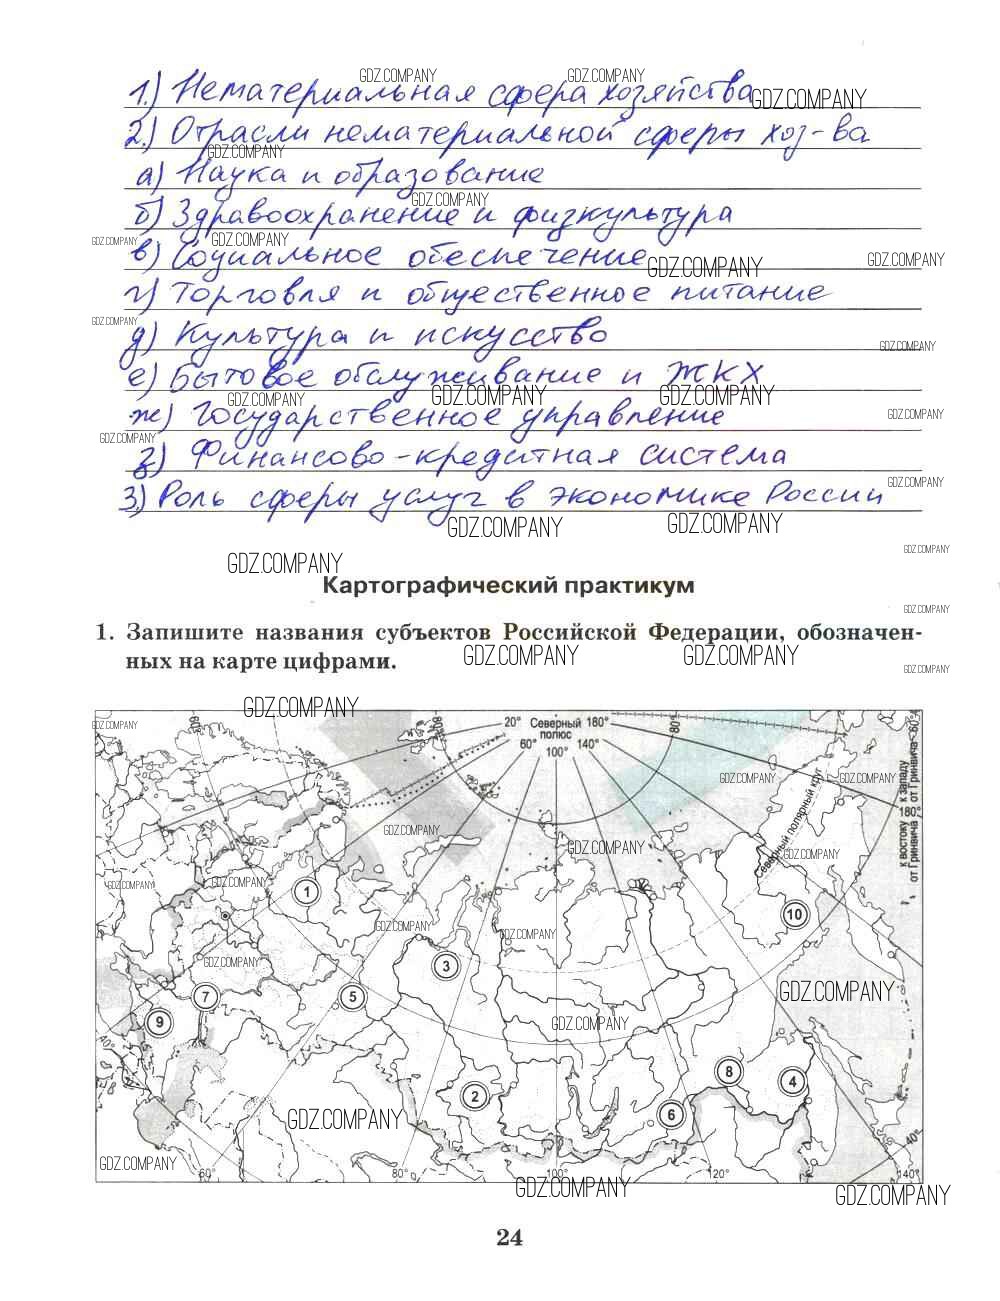 1.) Нематериальная сфера хозяйства
2.) Отрасли нематериальной сферы хоз-ва
а) Наука и образование
б) Здравоохранение и физкультура
в) Социальное обеспечение
г) Торговля и общественное питание
д) Культура и искусство
е) Бытовое обслуживание и ЖКХ
ж) Государственное управление
з) Финансово-кредитная система
3.) Роль сферы услуг в экономике России
GDZ.COMPANY
Картографический практикум
1. Запишите названия субъектов Российской Федерации, обозначен-
ных на карте цифрами.
20° Северный 180°
полюс
60° 100° 140°
80°
Северный полярный круг
к востоку к западу
от Гринвича от Гринвича
180°
60°
1
10
3
7
5
9
8
4
2
6
40°
40°
60° 80° 100° 120° 140°
24